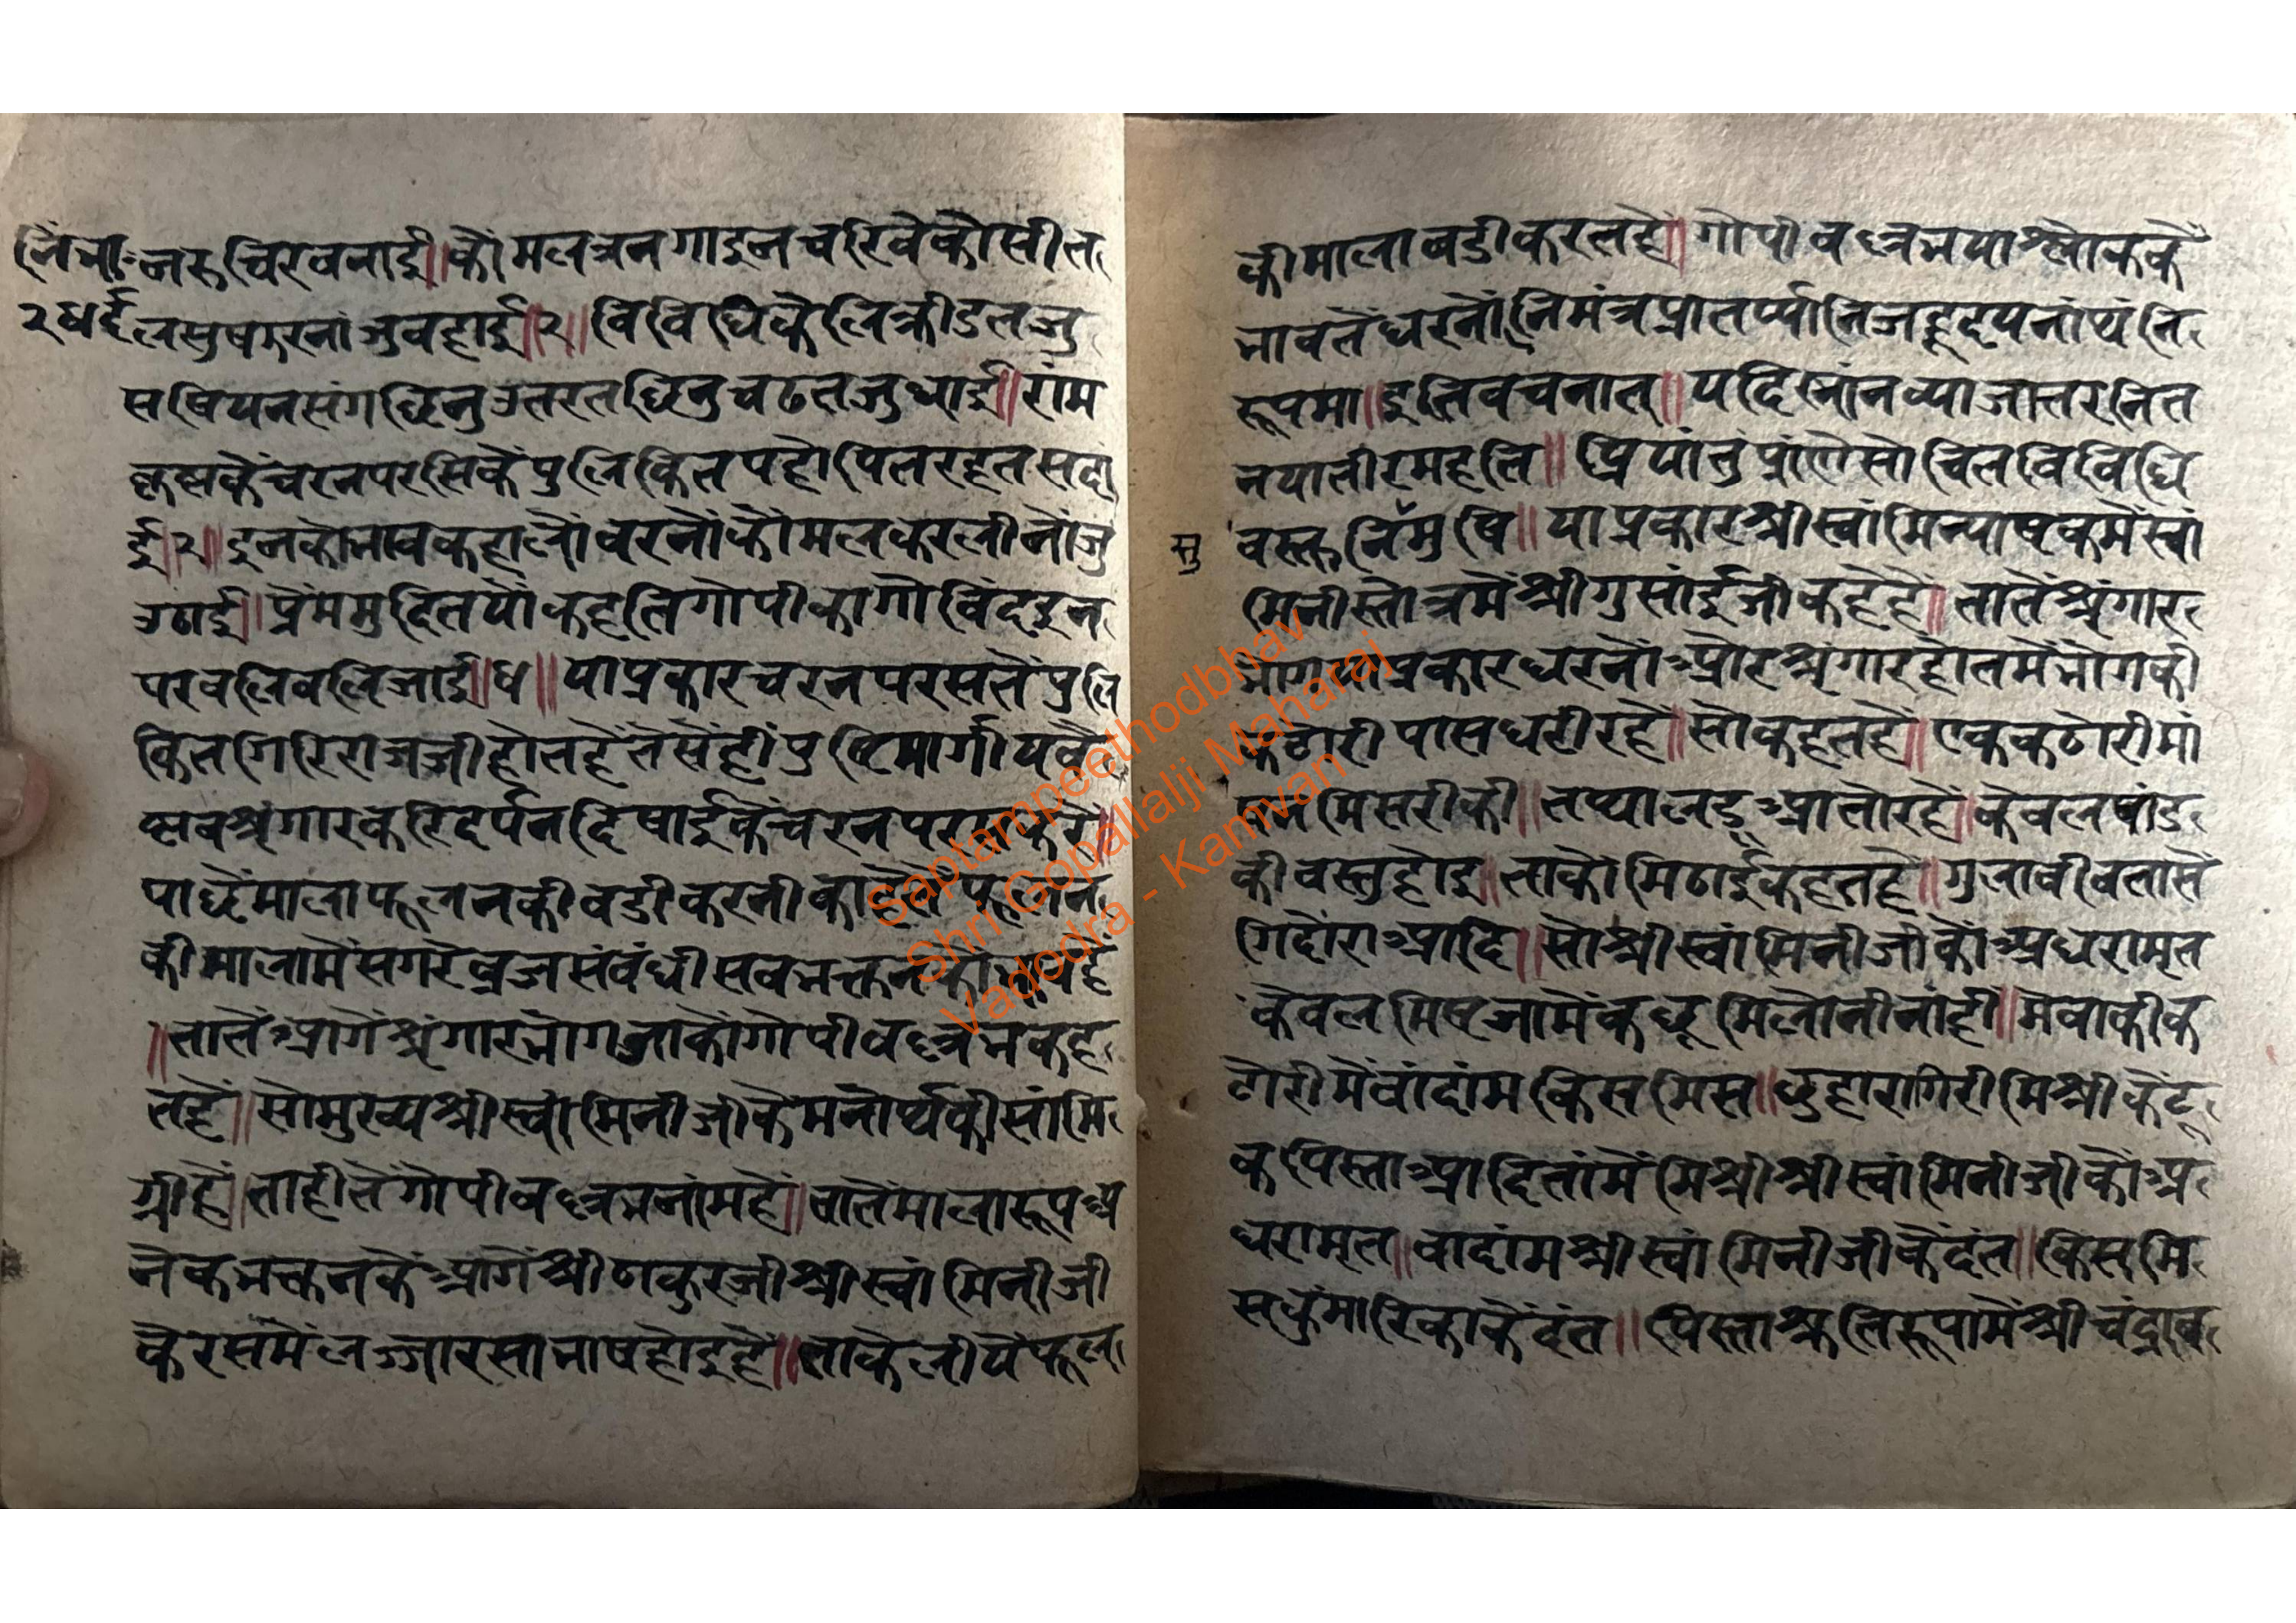 नरुचिरवनाई॥कोमलत्रनगाइनचरिवेकौसीत
लसुषकरनांजुवहाई॥२॥विविधिकेलिक्रीडतजु
सषियनसंगछिनुउतरतछिनुचढतजुधाई॥रांम
कृष्णकेंचरनपरसिकेंपुलिकितपहोपितरहतसदां
ई॥२॥इनकोभावकहालोंवरनोंकोंमलकरलीनोंजु
उठाई॥प्रेंममुदितयोंकहतिगोपीकागोविंदइन
परवलिवलिजाई॥४॥याप्रकारचरनपरसतेंपुलि
कितगिरिराजजीहोतहैंतेसेंहींपुष्टिमार्गीयवै
ष्णवश्रृंगारकरिदर्पनदिषाईकेंचरनपरसकरें॥
पाछेंमालाफूलनकीवडीकरनीकाहेतेंफूलन
कीमालामेंसगरेव्रजसंवंधीसवभक्तनको
॥तातेंआगेंश्रृंगारभोगजाकोंगोपीवल्लभकह
तहें॥सोमुख्यश्रीस्वांमिनीजीकेमनोर्थकीसांमि
ग्रीहैं॥ताहीतेंगोपीवल्लभनांमहें॥तातेंमालारूपअ
नेकभक्तनकेंआगेंश्रीठाकुरजीश्रीस्वांमिनीजी
केरसमेंलज्जारसाभाषहोइहैं॥ताकेलीयेंफूल
कीमालावडीकरतहें॥गोपीवल्लभयाश्लोककें
भावतेंधरनों॥निमंत्रप्रातर्प्यानिजहृदयनांथंनि
रूपमा॥इतिवचनात्॥यदिस्नांनव्याजात्तरनित
नयातीरमहति॥प्रियांनुंप्रांणेंसोचितविविधि
सु
वस्तुनिंमुषि॥याप्रकारश्रीस्वांमिन्याषकमेंस्वां
मिनीस्तोत्रमेंश्रीगुसांईजीकहेहैं॥तातेंश्रृंगार
भोगयाप्रकारधरनोंओरश्रृंगारहोतमेंभोगकी
कटोरीपासधरीरहें॥सोकहतहें॥एककटोरीमां
षनमिसरीकी॥तथालडूआतोरहें॥केवलषांड
कीवस्तुहोइ॥ताकोमिठाईकहतहै॥गुलावीवतासे
गिदोंराआदि॥सोश्रीस्वांमिनीजीकोंअधरामृत
केवलमिष्टजामेंकछूमिलोनीनांही॥मेवाकीक
टोरीमेंवांदांमकिसमिस॥छुहारागिरीमिश्रीकेटू
कपिस्ताआदितांमेंमिश्रीश्रीस्वांमिनीजीकोअ
धरामृत॥वादांमश्रीस्वांमिनीजीकेंदंत॥किसमि
सकुंमारिकाकेंदंत॥पिस्ताश्रुतिरूपामेंश्रीचंद्राव
Saptampeethodbhav
Shri Gopallalji Maharaj
Vadodra - Kamvan